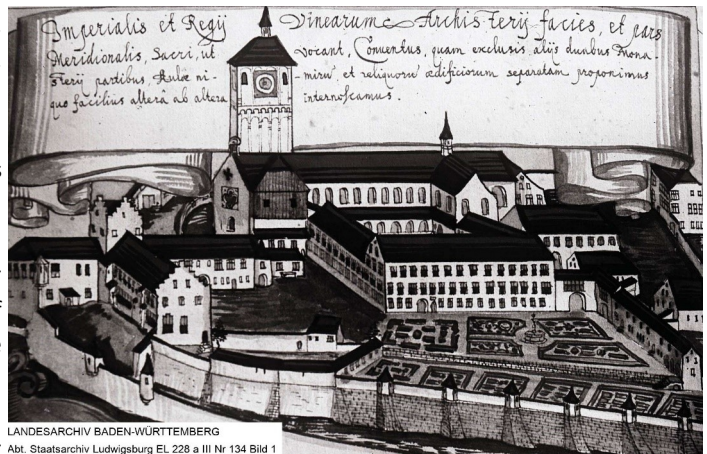 Imperialis et Regij Vinearum Archis-Terij facies, et pars
Meridionalis, Sacri, ut vocant, Conventus, quam exclusis alijs duabus Mona-
sterij partibus, Aulæ ni- mirū et reliquorū ædificiorum separatam proponimus
quo facilius alterā ab altera internoscamus.
LANDESARCHIV BADEN-WÜRTTEMBERG
Abt. Staatsarchiv Ludwigsburg EL 228 a III Nr 134 Bild 1